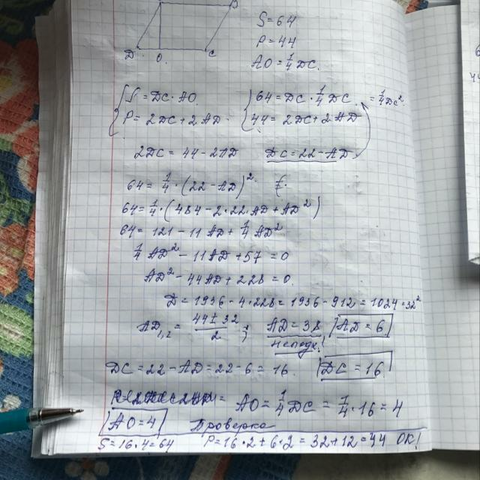 B
D O C
S = 64
P = 44
AO = 1/4 DC.
{ S = DC · AO
P = 2DC + 2AD.
{ 64 = DC · 1/4 DC = 1/4 DC²
44 = 2DC + 2AD
2DC = 44 - 2AD DC = 22 - AD
64 = 1/4 · (22 - AD)²
64 = 1/4 · (484 - 2·22AD + AD²)
64 = 121 - 11AD + 1/4 AD²
1/4 AD² - 11AD + 57 = 0
AD² - 44AD + 228 = 0.
D = 1936 - 4·228 = 1936 - 912 = 1024 = 32²
AD₁,₂ = (44 ± 32)/2 ; AD = 38 AD = 6
DC = 22 - AD = 22 - 6 = 16. DC = 16
AO = 1/4 DC = 1/4 · 16 = 4
AO = 4 Проверка
S = 16·4 = 64 P = 16·2 + 6·2 = 32 + 12 = 44 OK!
64